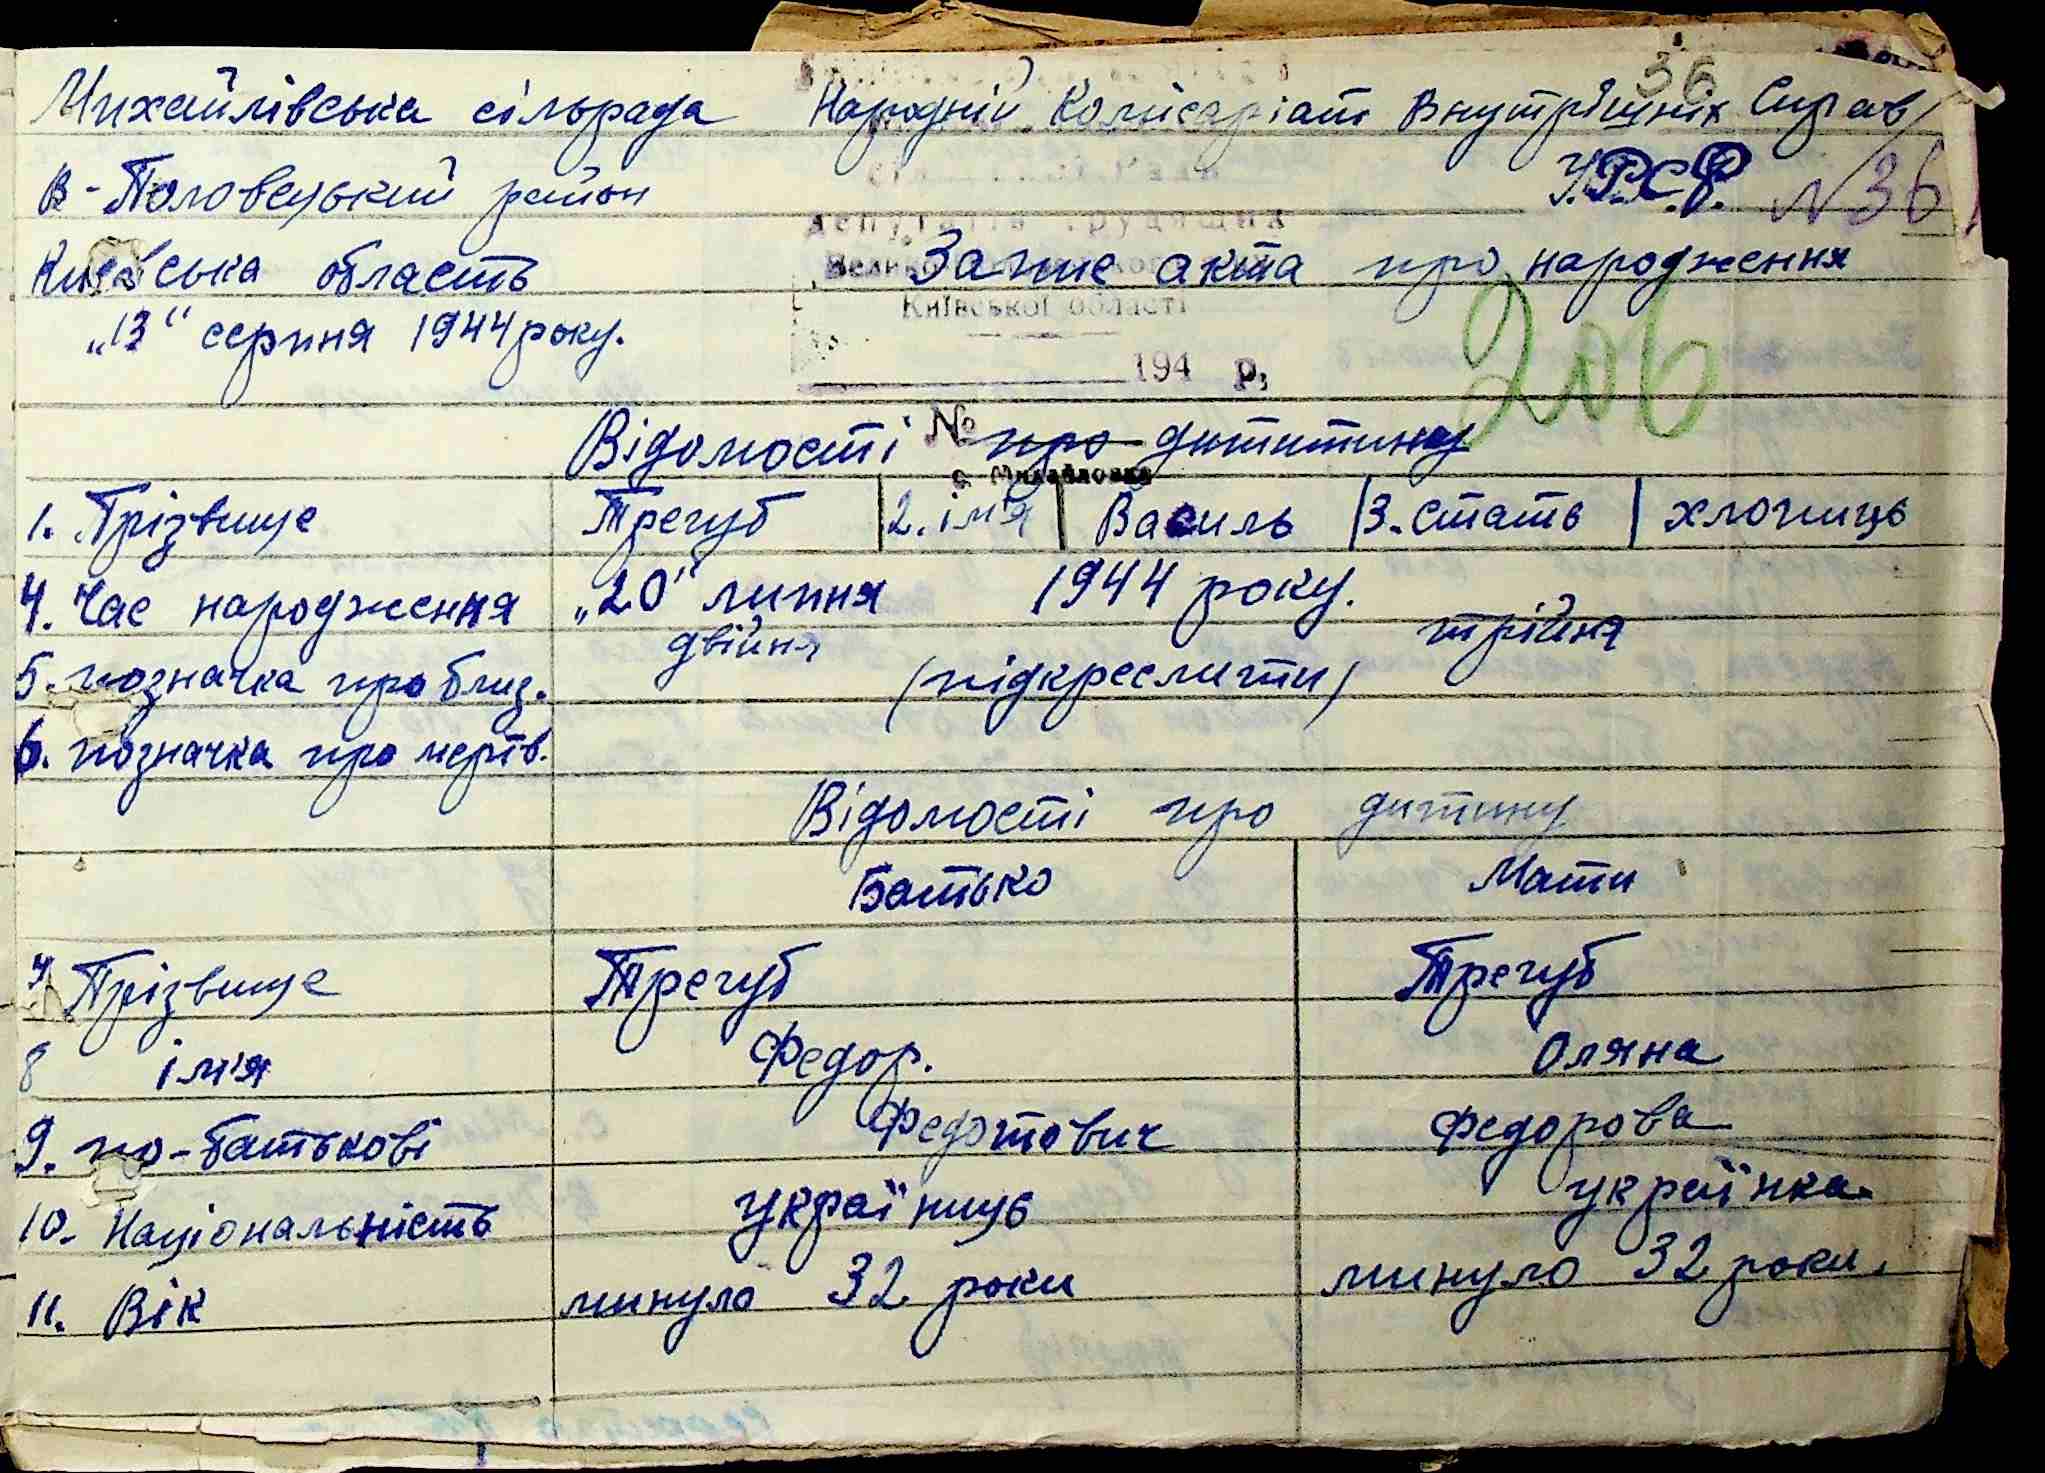 36
Михайлівська сільрада Народній Комісаріат Внутрішніх Справ
В-Половецький район У.Р.С.Р. N36
Київська область Запис акта про народження
Київської області
„13“ серпня 1944 року. 206
194 р.
№
Відомості про дититину
с. Михайловка
1. Прізвище Трегуб 2. ім'я Василь 3. стать хлопиць
4. Час народження „20“ липня 1944 року.
двійня трійня
5. позначка про близ. (підкреслити)
6. позначка про мертв.
Відомості про дитину
Батько Мати
7 Прізвище Трегуб Трегуб
8 ім'я Федор. Оляна
9. по-батькові Федотович Федорова
10. Національність україниць українка.
11. Вік минуло 32 роки минуло 32 роки.